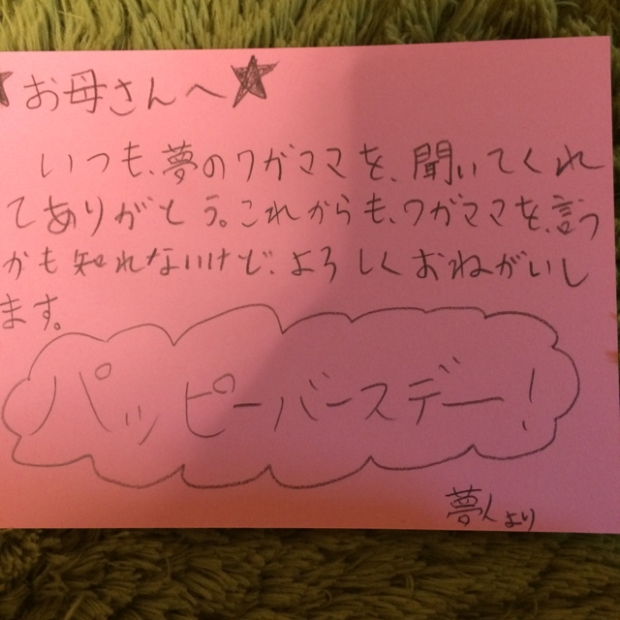 ★お母さんへ★
いつも、夢のワガママを、聞いてくれ
てありがとう。これからも、ワガママを、言う
かも知れないけど、よろしくおねがいし
ます。
パッピーバースデー!
夢人より